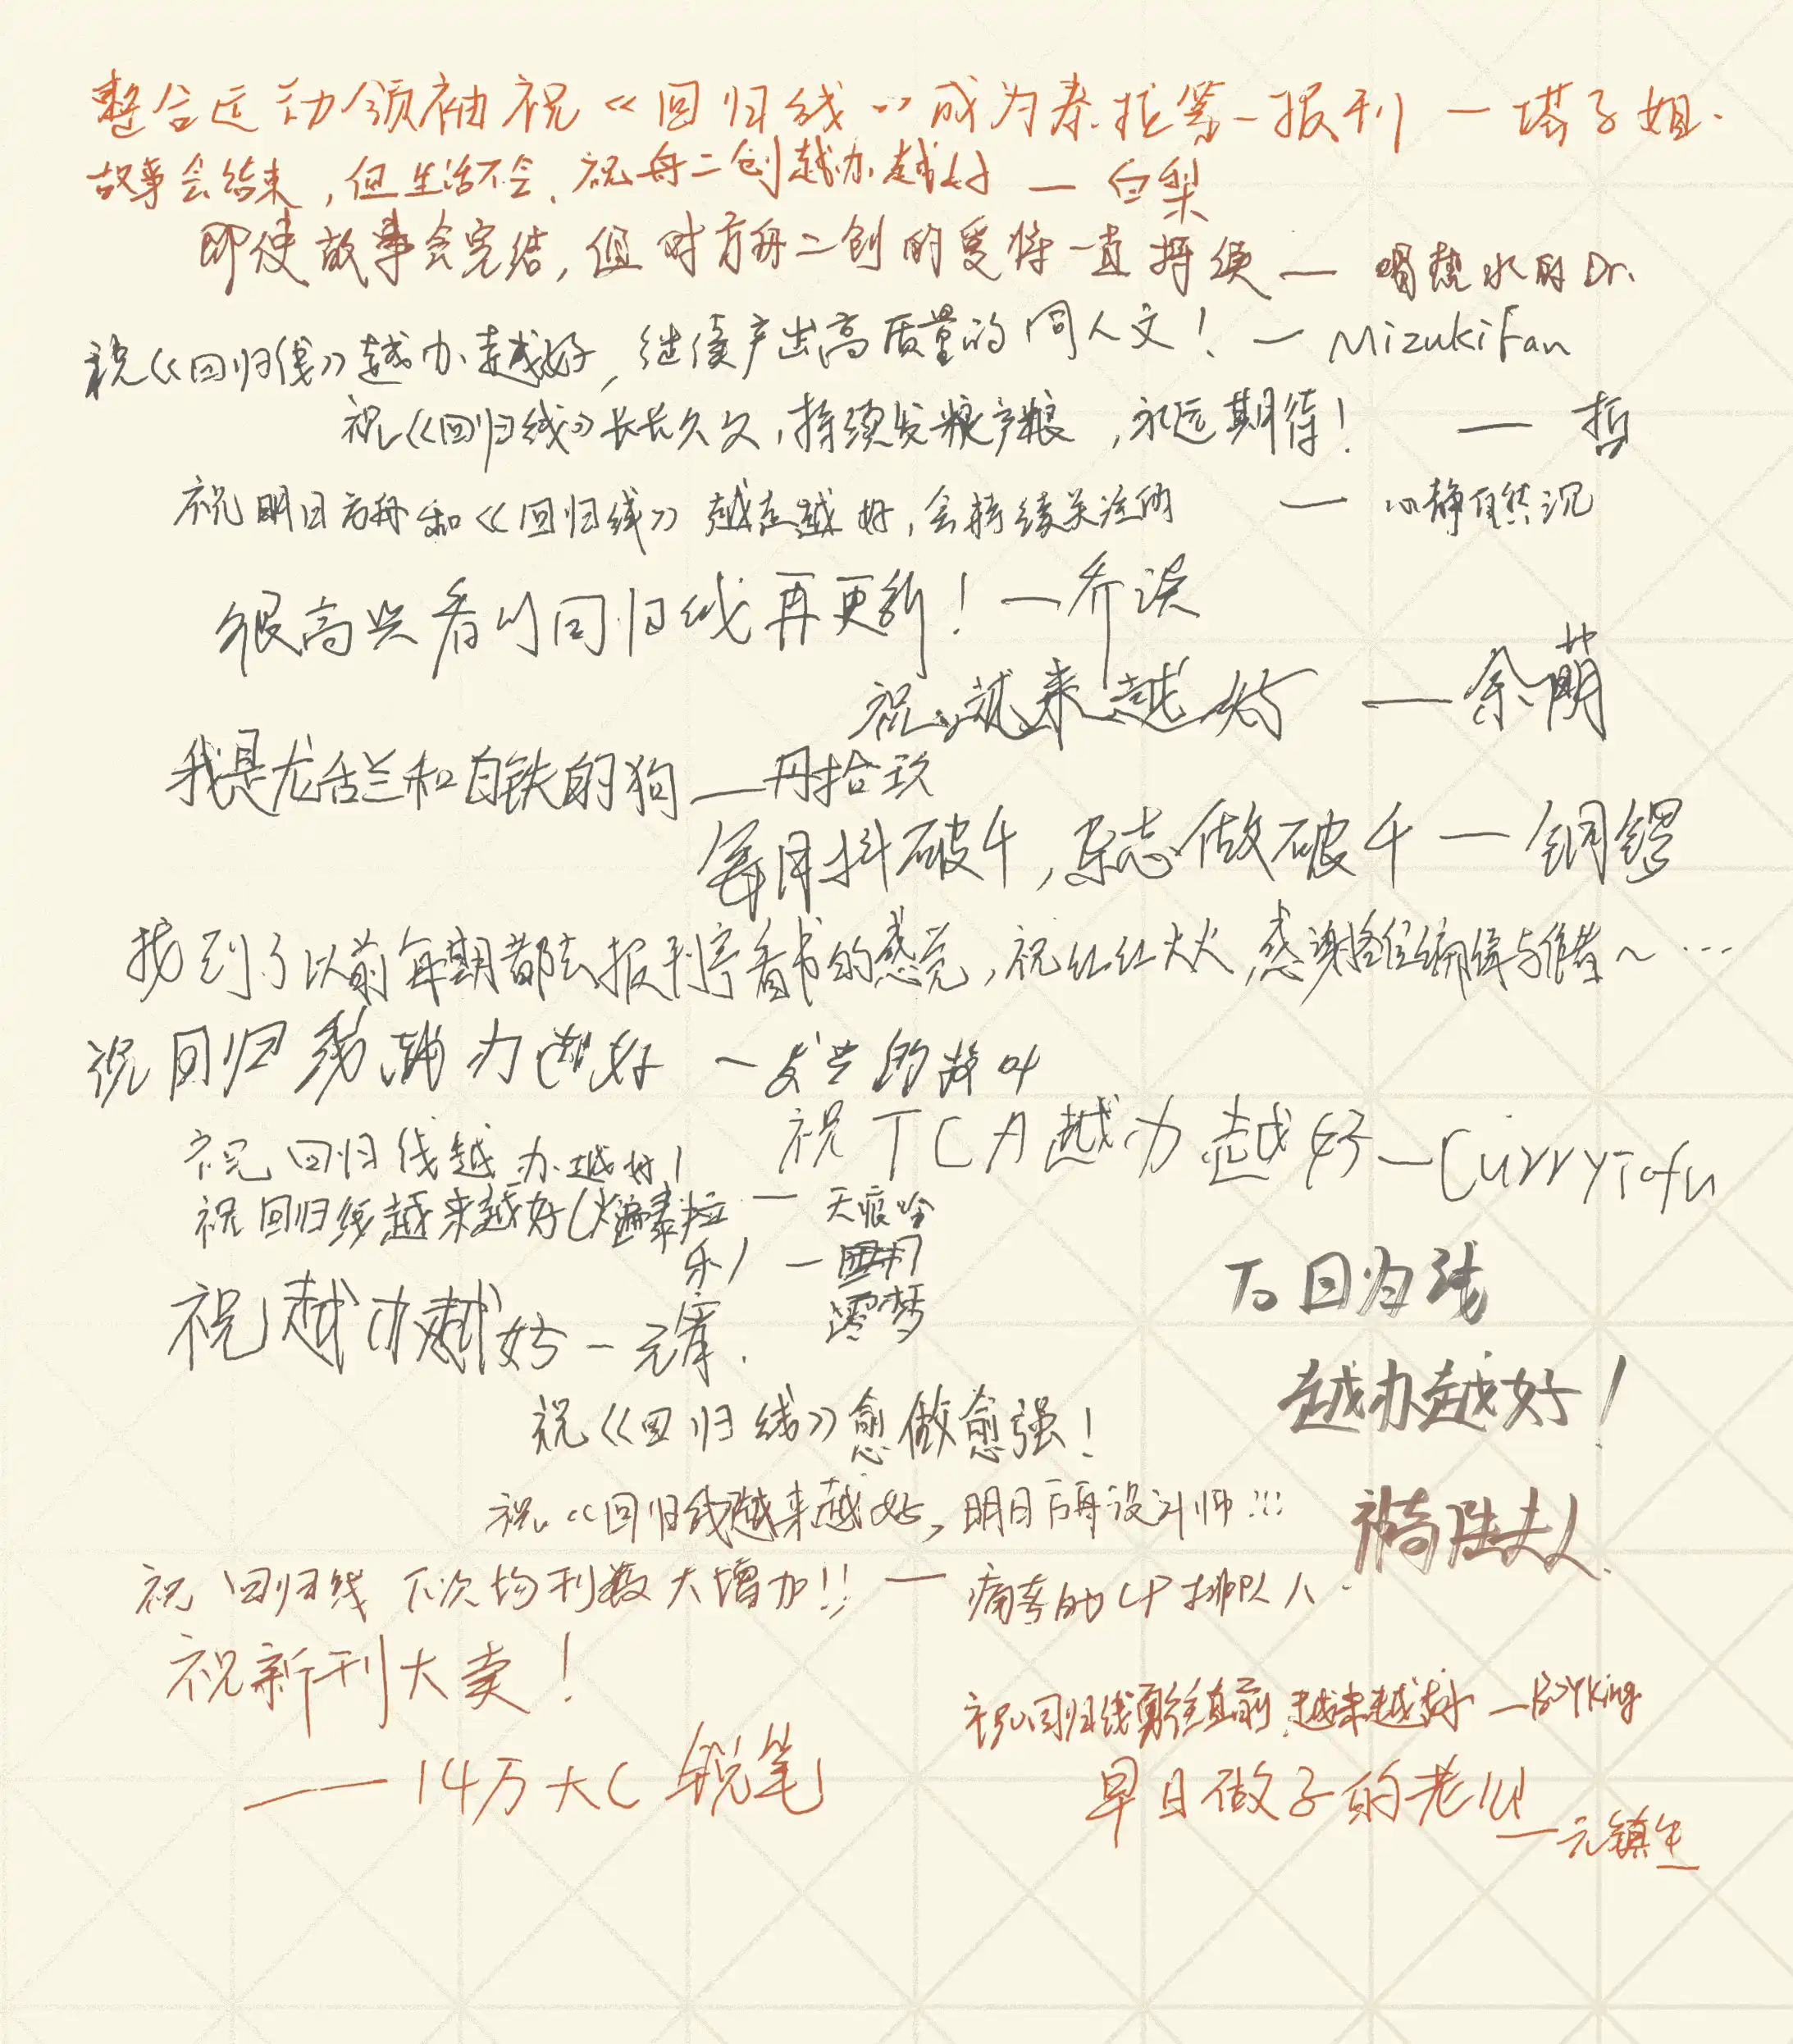 整合运动领袖祝《回归线》成为泰拉第一报刊 — 塔子姐.
故事会结束，但生活不会，祝舟二创越办越好 — 白梨
即使故事会完结，但对方舟二创的爱将一直持续 — 喝热水的Dr.
祝《回归线》越办越好，继续产出高质量的同人文！— MizukiFan
祝《回归线》长长久久，持续发粮产粮，永远期待！ — 哲
祝明日方舟和《回归线》越走越好，会持续关注的 — 心静自然沉
很高兴看到回归线再更新！—乔
祝越来越好 — 余萌
我是龙舌兰和白铁的狗 — 丹拾玖
每月抖破千，杂志做破千 — 铜锣
找到了以前每期都去报刊亭看书的感觉，祝红红火火，感谢各位编辑与作者～…
祝回归线越办越好 —
祝TCA越办越好 — CurryTofu
祝回归线越办越好！
— 天痕吟
祝回归线越来越好（火遍泰拉
乐） —
零梦
祝越办越好 — 元
To 回归线
越办越好！
祝《回归线》愈做愈强！
祝《回归线越来越好，明日方舟设计师!!!
祝旗开得胜
祝回归线下次场刊数大增加!! — 痛苦的CP排队人.
祝新刊大卖！
—— 14万大C 锐笔
祝回归线勇往直前，越来越好 — BoyKing
早日做
— 元镇生